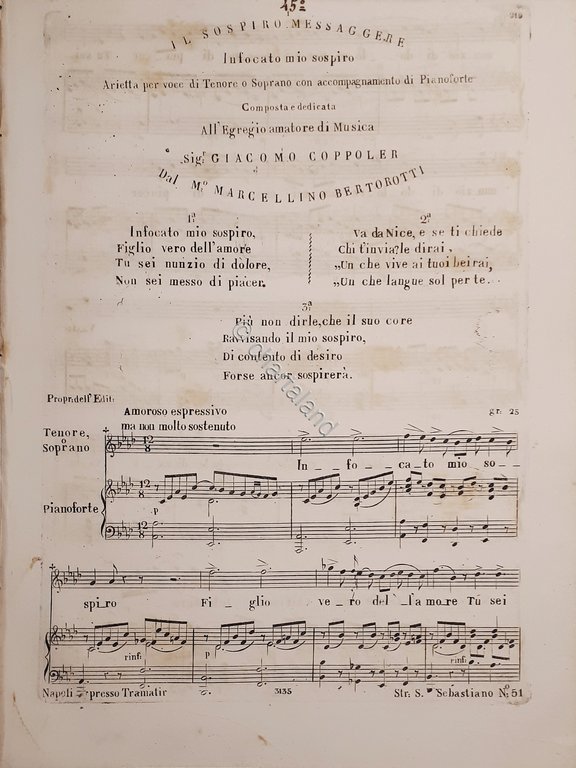 15ª
IL SOSPIRO MESSAGGERE
Infocato mio sospiro
Arietta per voce di Tenore o Soprano con accompagnamento di Pianoforte
Composta e dedicata
All'Egregio amatore di Musica
Sigr. GIACOMO COPPOLER
Dal Mo. MARCELLINO BERTOROTTI
1ª
Infocato mio sospiro,
Figlio vero dell'amore
Tu sei nunzio di dolore,
Non sei messo di piacer.
2ª
Va da Nice, e se ti chiede
Chi t'invia? le dirai,
„Un che vive ai tuoi bei rai,
„Un che langue sol per te.
3ª
Più non dirle, che il suo core
Ravvisando il mio sospiro,
Di contento di desiro
Forse ancor sospirerà.
© chartaland
Propr. dell' Edit:
gr: 25
Amoroso espressivo
ma non molto sostenuto
Tenore,
o Soprano
In_fo_ca_to mio so_
Pianoforte
p
spi_ro Fi_glio ve_ro del_l'a mo_re Tu sei
rinf:
p
rinf:
Napoli presso Tramatir
3135
Str: S. Sebastiano No. 51